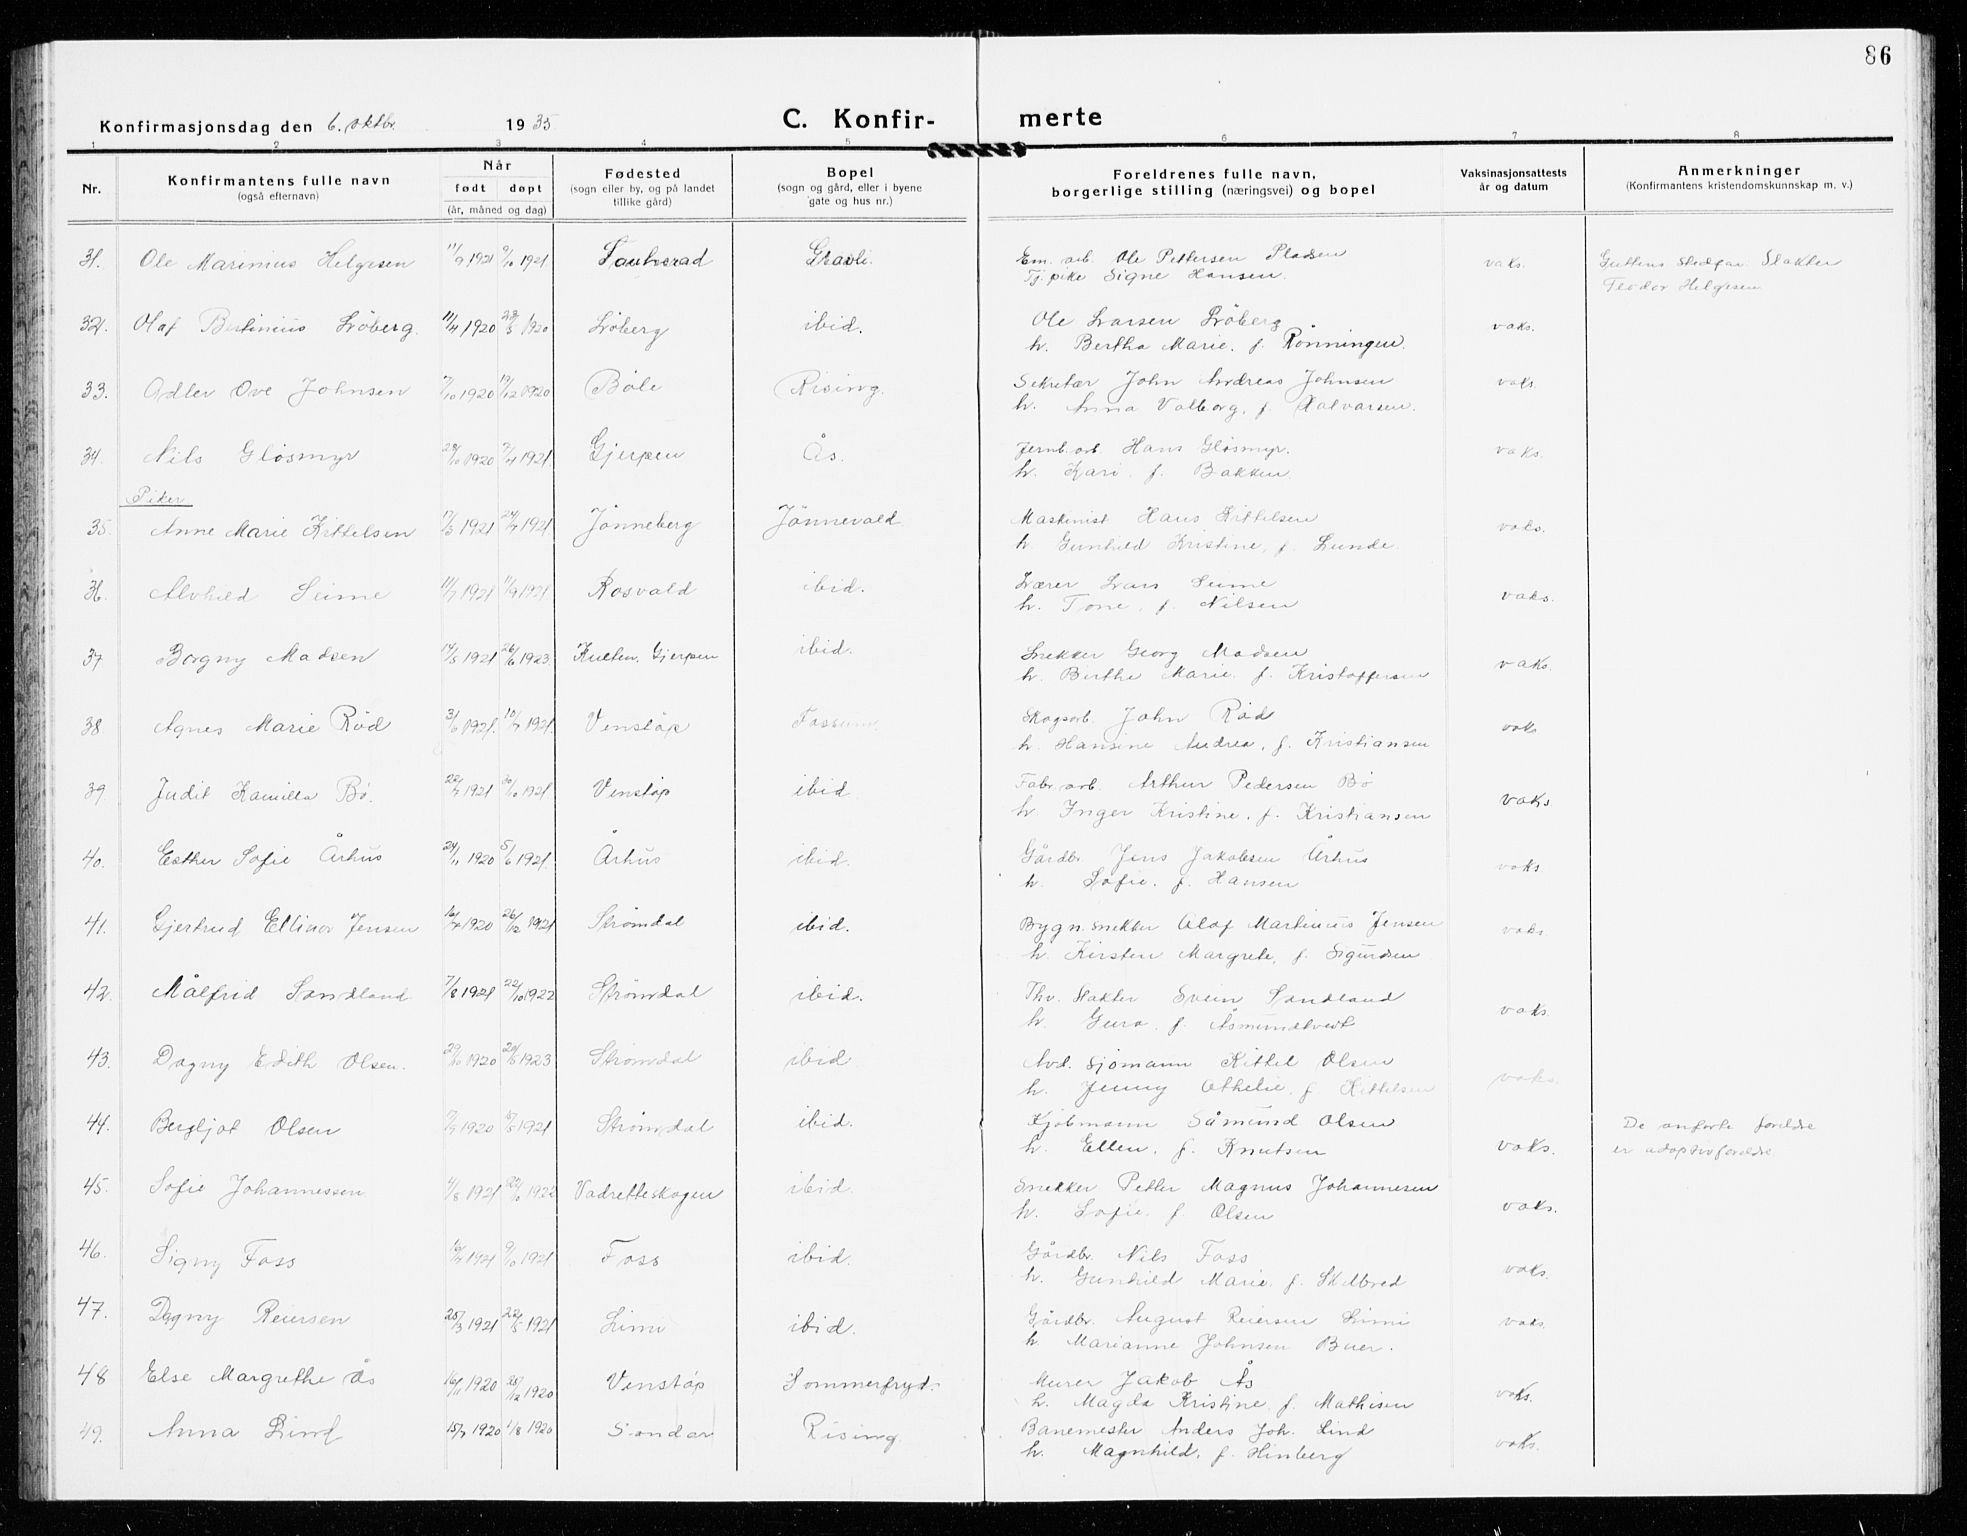 86
Konfirmasjonsdag den 6. oktbr. 1935 C. Konfir- merte
1 2 3 4 5 6 7 8
Nr. Konfirmantens fulle navn (også efternavn) Når født døpt (år, måned og dag) Fødested (sogn eller by, og på landet tillike gård) Bopel (sogn og gård, eller i byene gate og hus nr.) Foreldrenes fulle navn, borgerlige stilling (næringsvei) og bopel Vaksinasjonsattests år og datum Anmerkninger (Konfirmantens kristendomskunnskap m. v.)
31. Ole Marinius Helgesen 11/9 1921 9/10 1921 Sauherad Gravli. Em. arb. Ole Pettersen Pladsen vaks. Guttens stedfar Slakter
Tj. pike Signe Hansen. Teodor Helgesen
32. Olaf Bertinius Löberg. 11/4 1920 23/5 1920 Löberg ibid. Ole Larsen Löberg vaks.
h. Bertha Marie, f. Rönningen.
33. Adler Ove Johnsen 7/10 1920 19/12 1920 Böle Rising. Sekretær John Andreas Johnsen vaks.
h. Anna Valborg, f. Halvorsen.
34. Nils Glösmyr 28/10 1920 7/4 1921. Gjerpen Ås. Jernb. arb. Hans Glösmyr. vaks.
h. Kari f. Bakken
Piker
35. Anne Marie Kittelsen 17/3 1921 24/7 1921. Jönneberg Jönnevald Maskinist Hans Kittelsen vaks.
h. Gunhild Kristine, f. Lunde.
36. Alvhild Seime 11/7 1921 11/9 1921 Rosvald ibid. Lærer Lars Seime vaks.
h. Tone, f. Nilsen
37 Borgny Madsen 14/5 1921 26/6 1923. Kulten, Gjerpen ibid. Snekker Georg Madsen vaks.
h. Berthe Marie f. Kristoffersen
38 Agnes Marie Röd 3/6 1921. 10/7 1921. Venstöp Fossum Skogsarb. John Röd vaks
h. Hansine Andrea, f. Kristiansen
39 Judit Kamilla Bö. 22/7 1921 30/10 1921 Venstöp ibid Fabr. arb. Arthur Pedersen Bö vaks
h. Inger Kristine, f. Kristiansen
40. Esther Sofie Århus 24/11 1920 5/6 1921. Århus ibid. Gårdbr. Jens Jakobsen Århus vaks
h. Sofie, f. Hansen
41. Gjertrud Ellinor Jensen 16/7 1920 26/12 1921 Strömdal ibid. Bygn. snekker Olaf Martinius Jensen vaks
h. Kirsten Margrete, f. Sigurdsen
42. Målfrid Sandland 7/8 1921 22/10 1922 Strömdal ibid. Thv. Slakter Svein Sandland vaks.
h. Guro f. Åsmundtveit
43. Dagny Edith Olsen. 29/10 1920 24/6 1923 Strömdal ibid Avd. Sjömann Kittel Olsen vaks.
h. Jenny Othelie, f. Kittelsen
44. Bergljot Olsen 7/7 1920 15/5 1921 Strömdal ibid. Kjöbmann Såmund Olsen De anförte foreldre
h. Ellen, f. Knutsen vaks. er adoptivforeldre
45. Sofie Johannessen 4/8 1921 22/10 1922 Vadretteskogen ibid Snekker Petter Magnus Johannesen vaks.
h. Sofie, f. Olsen
46. Signy Foss 16/7 1921 9/10 1921 Foss ibid Gårdbr. Nils Foss vaks.
h. Gunhild Marie, f. Skilbred
47. Dagny Reiersen 25/3 1921 22/5 1921 Limi ibid. Gårdbr. August Reiersen Limi vaks.
h. Marianne Johnsen Buer.
48 Else Margrethe Ås 16/11 1920 25/12 1920 Venstöp Sommerfryd. Murer Jakob Ås vaks.
h. Magda Kristine f. Mathisen
49. Anna Lind 15/7 1920 1/8 1920 Sandar Rising. Banemester Anders Joh. Lind vaks.
h. Magnhild, f. Hinberg